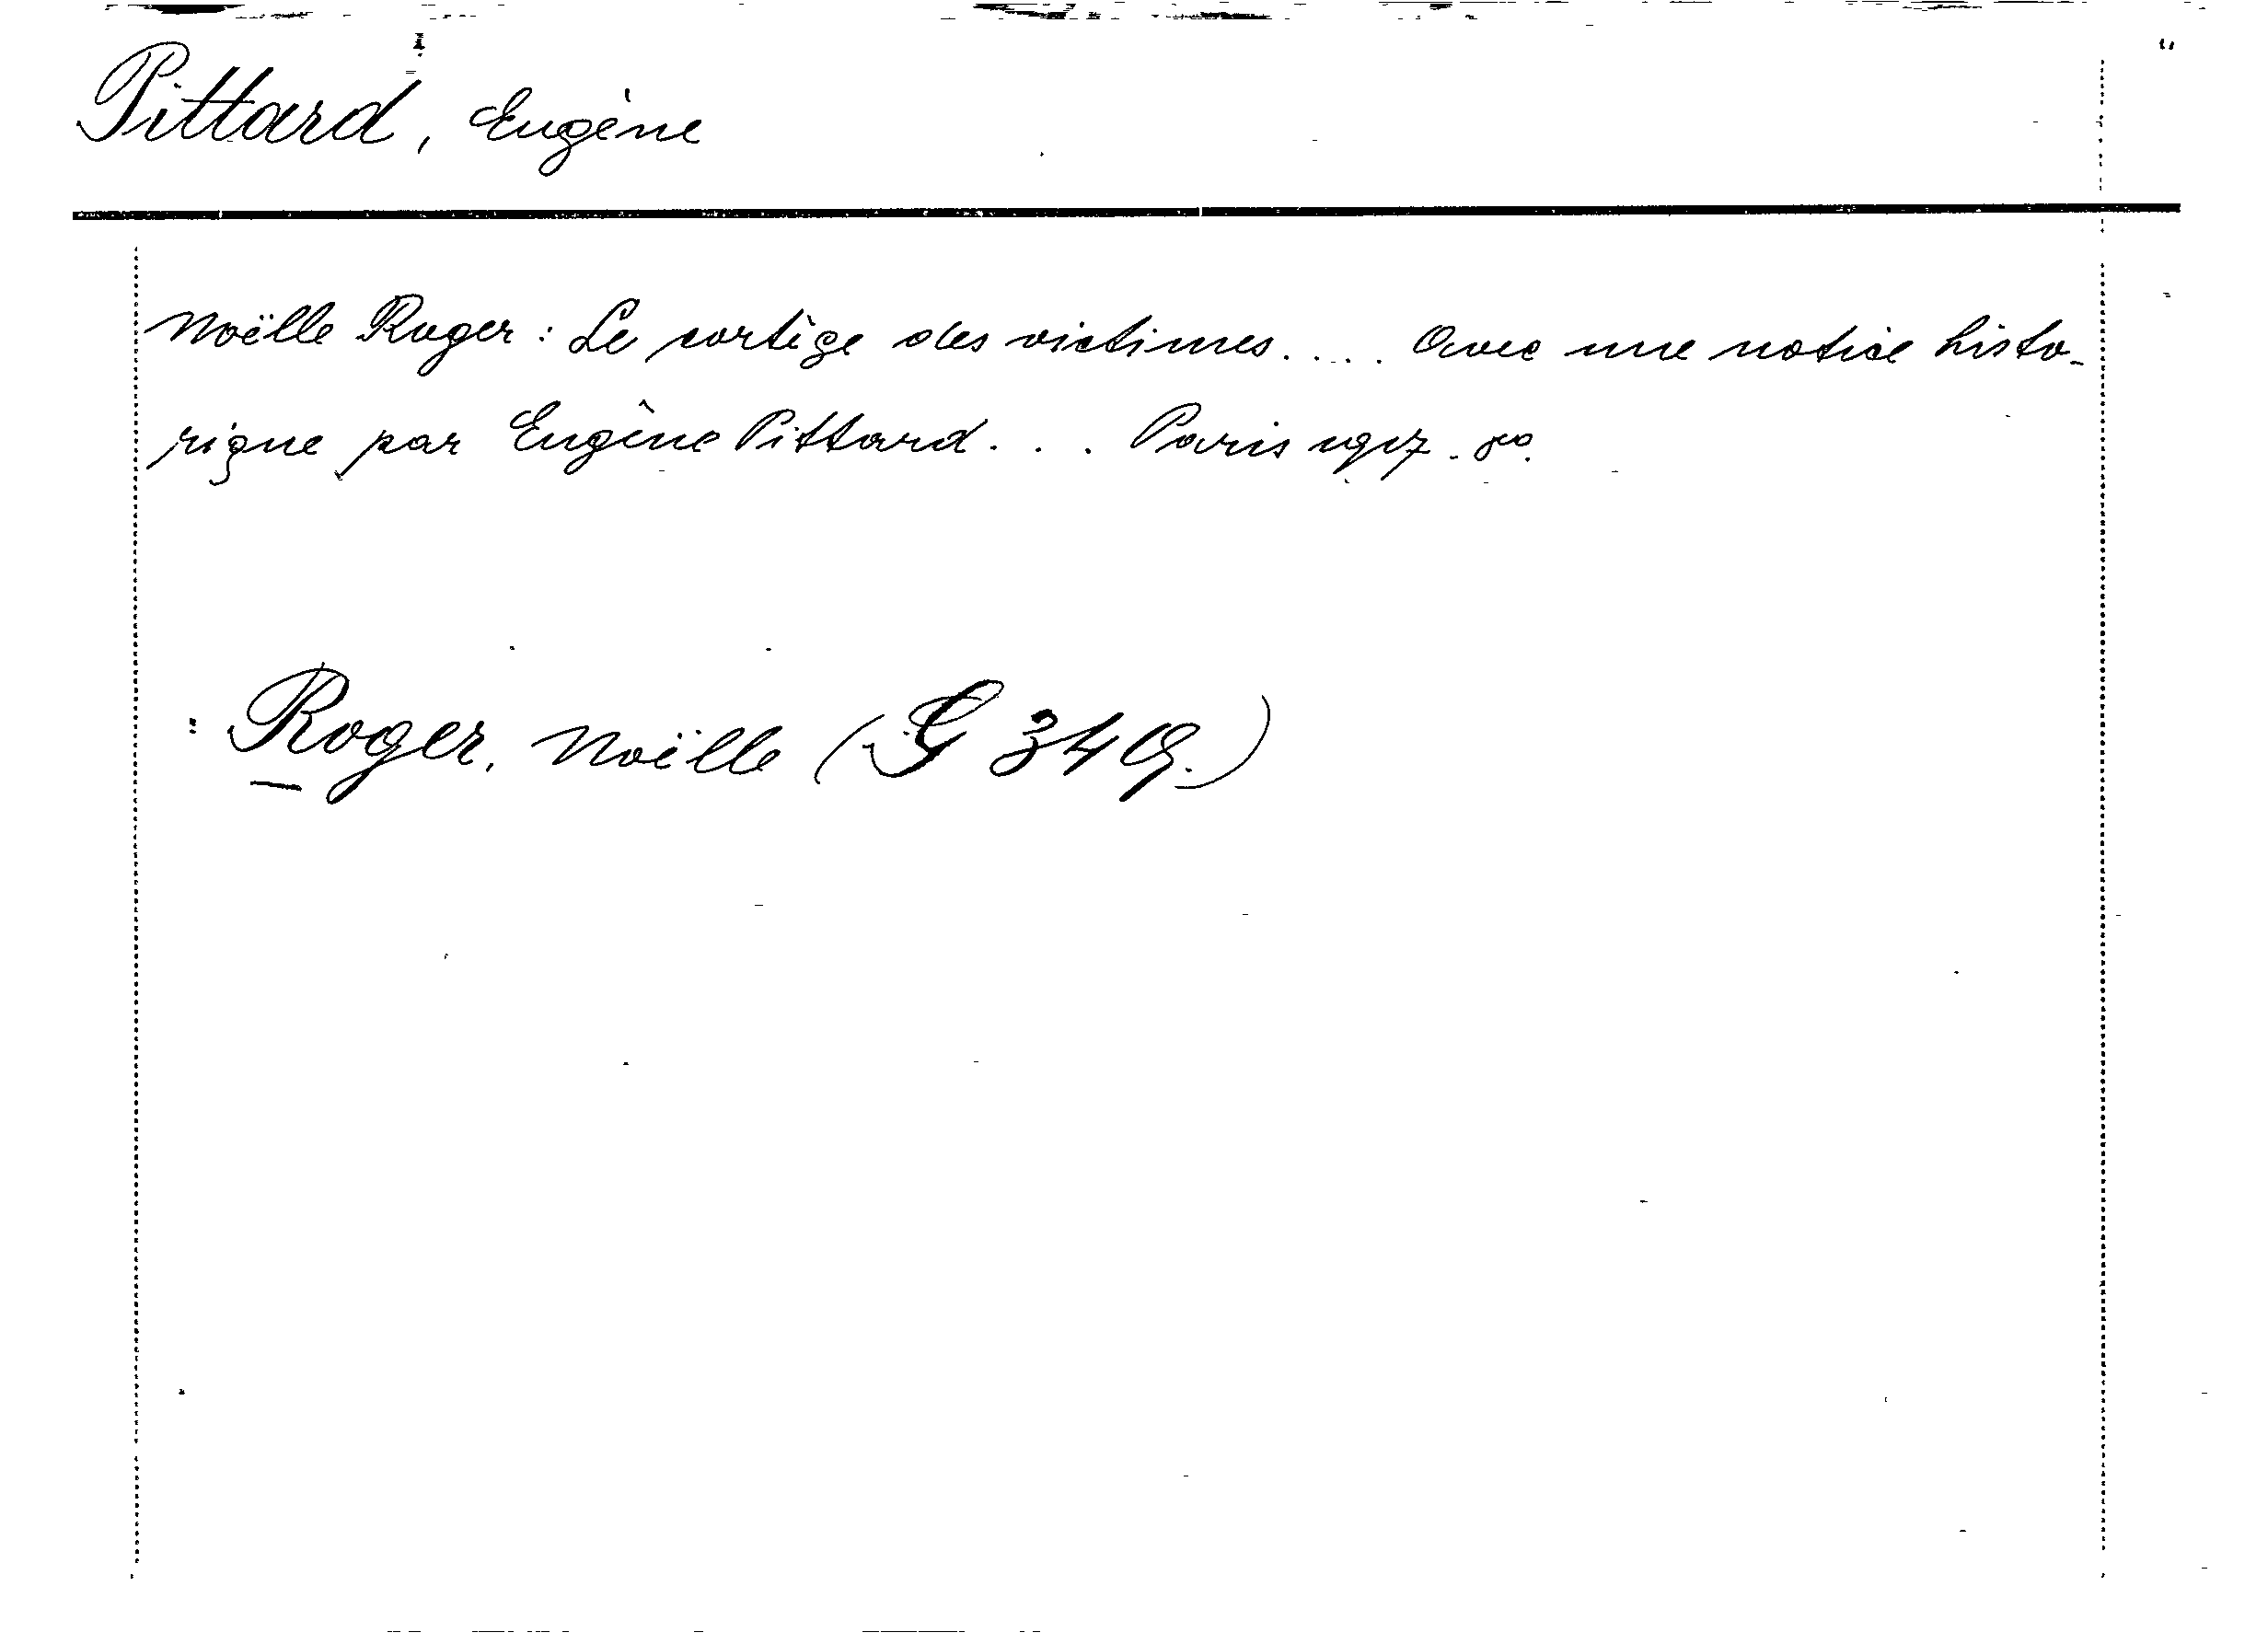 Pittard, Eugène
Noëlle Roger: Le cortège des victimes.... Avec une notice histo-
rique par Eugène Pittard... Paris 1917. 8o.
: Roger, Noëlle (G 349.)